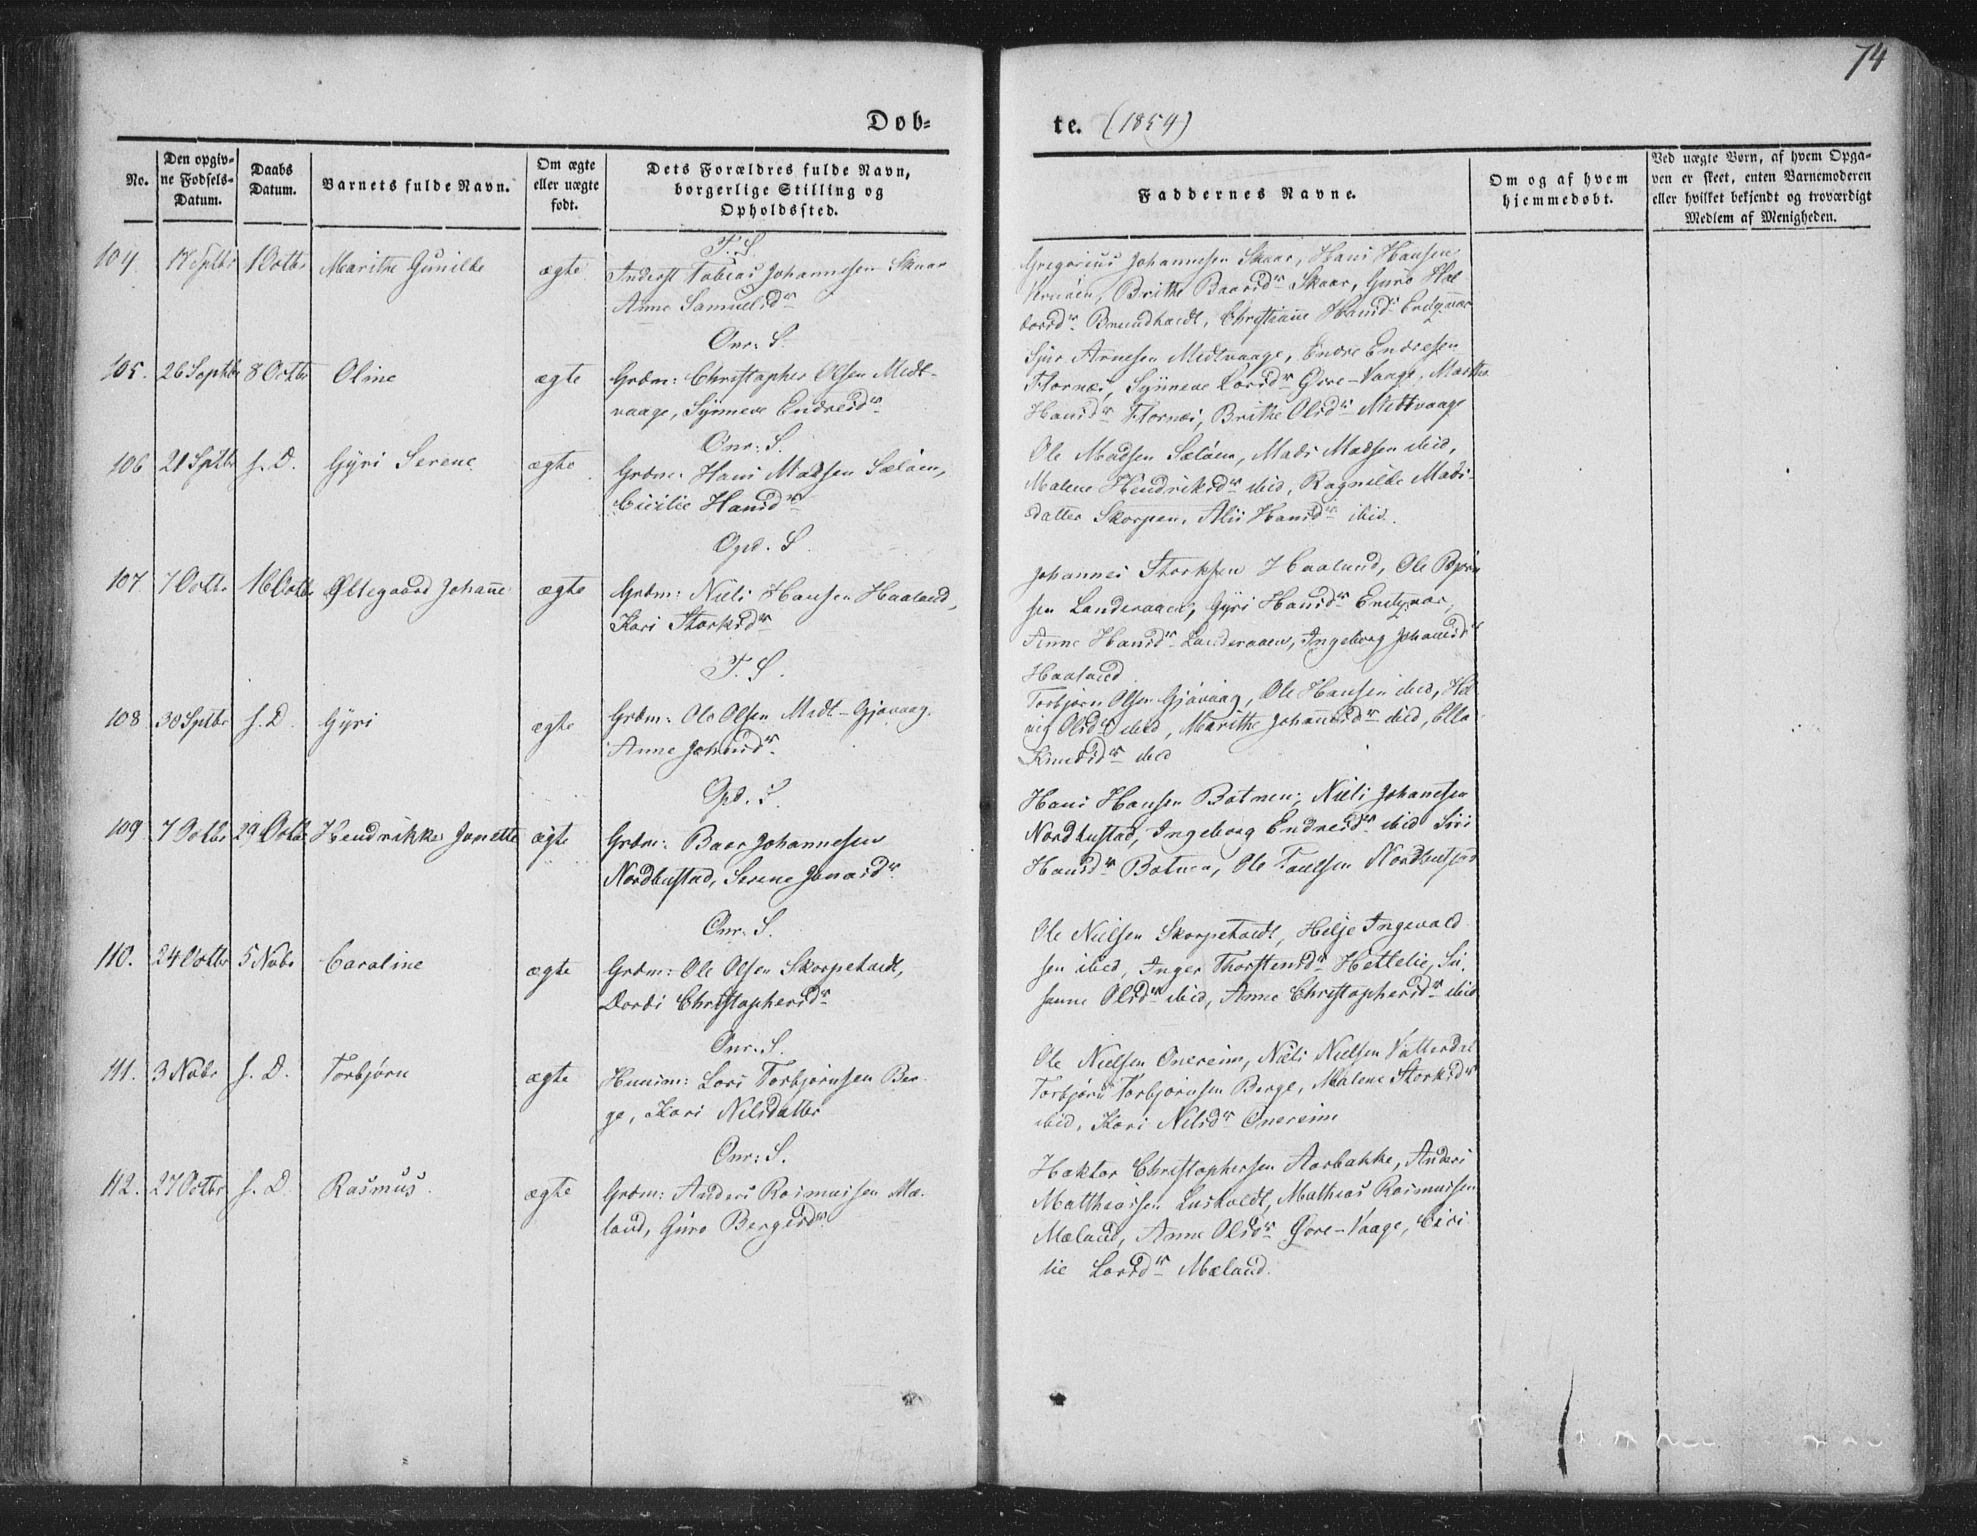 74
Døb-
te. (1854)
No.
Den opgiv-
ne Fødsels-
Datum.
Daabs
Datum.
Barnets fulde Navn.
Om ægte
eller uægte
født.
Dets Forældres fulde Navn,
borgerlige Stilling og
Opholdssted.
Faddernes Navne.
Om og af hvem
hjemmedøbt.
Ved uægte Børn, af hvem Opga-
ven er skeet, enten Barnemoderen
eller hvilket bekjendt og troværdigt
Medlem af Menigheden.
T. S.
104. 17 Sptbr 1 Octbr Marithe Gunilde ægte Tobias Johannesen Skaar
Anne Samuelsdr
Gregorius Johannesen Skaar, Hans Hansen
Brithe Baardsdr Skaar, Guro Hal-
Christiane Hansdr
Onr: S.
105. 26 Septbr 8 Octbr Oline ægte Grdm: Christopher Olsen Midt-
vaage, Synneve Endresdr
Sjur Arnesen Midtvaage, Endre Endresen
Flornæs, Synneve Larsdr Øvre-Vaage, Marthe
Hansdr Flornæs, Brithe Olsdr Midtvaage
Onr: S.
106 21 Sptbr s. D. Gyri Serene ægte Grdm: Hans Madsen Sæløen,
Cicilie Hansdr
Ole Madsen Sæløen, Mads Madsen ibid,
Malene Hendriksdr ibid, Ragnilde Mads-
datter Skorpen, Hansdr ibid.
Opd. S.
107. 7 Octbr 16 Octbr Øllegaard Johanne ægte Grdm: Niels Hansen Haaland,
Kari Storksdr
Johannes Storksen Haaland, Ole Bjørn
sen Landeraaen, Gyri Hansdr
Anne Hansdr Landeraaen, Ingeborg Johansdr
Haaland.
T. S.
108 30 Sptbr s. D. Gyri ægte Grdm: Ole Olsen Midt-Gjøvaag.
Anne Johansdr
Torbjørn Olsen Gjøvaag, Ole Hansen ibid,
Olsdr ibid, Marithe Johannesdr ibid,
Knudsdr ibid
Opd. S.
109 7 Octbr 29 Octbr Hendrikke Janette ægte Grdm: Baar Johannesen
Nordhustad, Serene Jonasdr
Hans Hansen Botnen, Niels Johansen
Nordhustad, Ingeborg Endresdr ibid Siri
Hansdr Botnen, Ole Nordhustad
Onr. S.
110. 24 Octbr 5 Nvbr Caroline ægte Grdm: Ole Olsen Skorpeholdt,
Dordi Christophersdr
Ole Nielsen Skorpeholdt, Helje Ingevald
sen ibid, Inger Thorstensdr Hettelie, Su-
sanne Olsdr ibid, Anne Christophersdr ibid
Onr. S.
111. 3 Nvbr s. D. Torbjørn ægte Huusm: Lars Torbjørnsen Ber-
ge, Kari Nilsdatter
Ole Nielsen Onereim, Niels Nielsen Vatterdal
Torbjørn Torbjørnsen Berge, Malene Storksdr
ibid, Kari Nilsdr Onereim
Onr: S.
112. 27 Octbr s. D. Rasmus ægte Grdm: Anders Rasmussen Mæ-
land, Guro Bergesdr
Haktor Christophersen Aarbakke, Anders
Matthiassen Mathias Rasmussen
Mæland, Anne Olsdr Øvre-Vaage, Cici-
lie Larsdr Mæland.